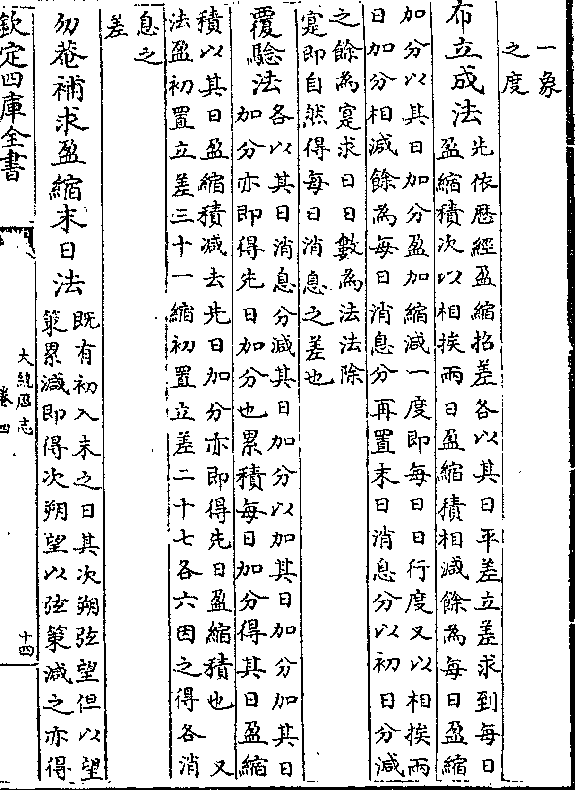 一象
之度
布立成法
先依歴經盈縮招差各以其日平差立差求到每日
盈縮積次以相挨兩日盈縮積相減餘為每日盈縮
加分以其日加分盈加縮減一度即每日日行度又以相挨兩
日加分相減餘為每日消息分再置末日消息分以初日分減
之餘為寔求日日數為法法除
寔即自然得每日消息之差也
覆驗法
各以其日消息分減其日加分以加其日加分加其日
加分亦即得先日加分也累積每日加分得其日盈縮
積以其日盈縮積減去先日加分亦即得先日盈縮積也 又
法盈初置立差三十一縮初置立差二十七各六因之得各消
息之
差
勿菴補求盈縮末日法
既有初入末之日其次朔弦望但以望
策累減即得次朔望以弦策減之亦得
欽定四庫全書
大統歴志
卷四
十四